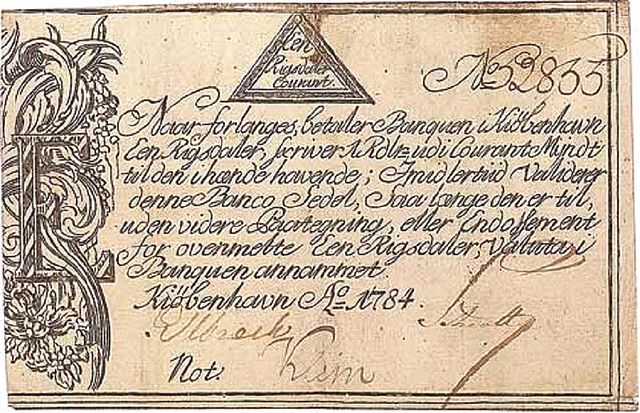 Een
Rigsdaler
Courant.
No 52855
Naar forlanges, betaler Banquen i Kiöbenhavn
Een Rigsdaler, skriver 1 Rdlr: udi Courante Myndt
til den i hænde havende; Imidlertiid Validerer
denne Banco Sedel, Saa længe den er til,
uden videre Paategning, eller Endossement
for ovenmelte Een Rigsdaler, Valuta i
Banquen annammet.
Kiöbenhavn Ao 1784.
Not.